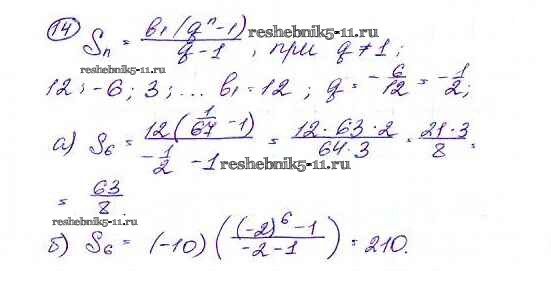 14 Sₙ = b₁(qⁿ-1) / q-1, при q≠1;
reshebnik5-11.ru
12; -6; 3; ... b₁=12; q = -6/12 = -1/2;
а) S₆ = 12(1/67 -1) / -1/2 -1 = 12·63·2 / 64·3 = 21·3 / 8 =
reshebnik5-11.ru
= 63/8.
reshebnik5-11.ru
б) S₆ = (-10) ((-2)⁶-1 / -2-1) = 210.